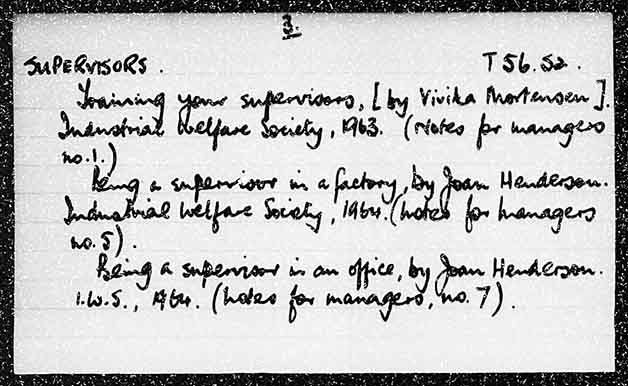 3.
SUPERVISORS. T 56. S2.
Training your supervisors, [by Vivika Mortensen].
Industrial Welfare Society, 1963. (Notes for managers
no. 1.)
Being a supervisor in a factory, by Joan Henderson.
Industrial Welfare Society, 1964. (Notes for managers
no. 5).
Being a supervisor in an office, by Joan Henderson.
I.W.S., 1964. (Notes for managers, no. 7).